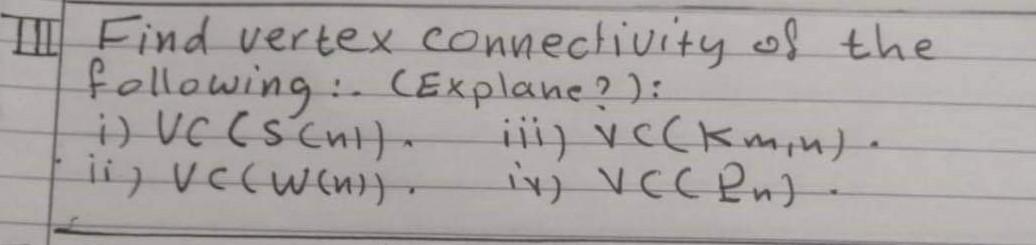 III Find vertex connectivity of the
following :. (Explane?):
i) VC(S(n)). iii) VC(Km,n).
ii) VC(W(n)). iv) VC(Pn).